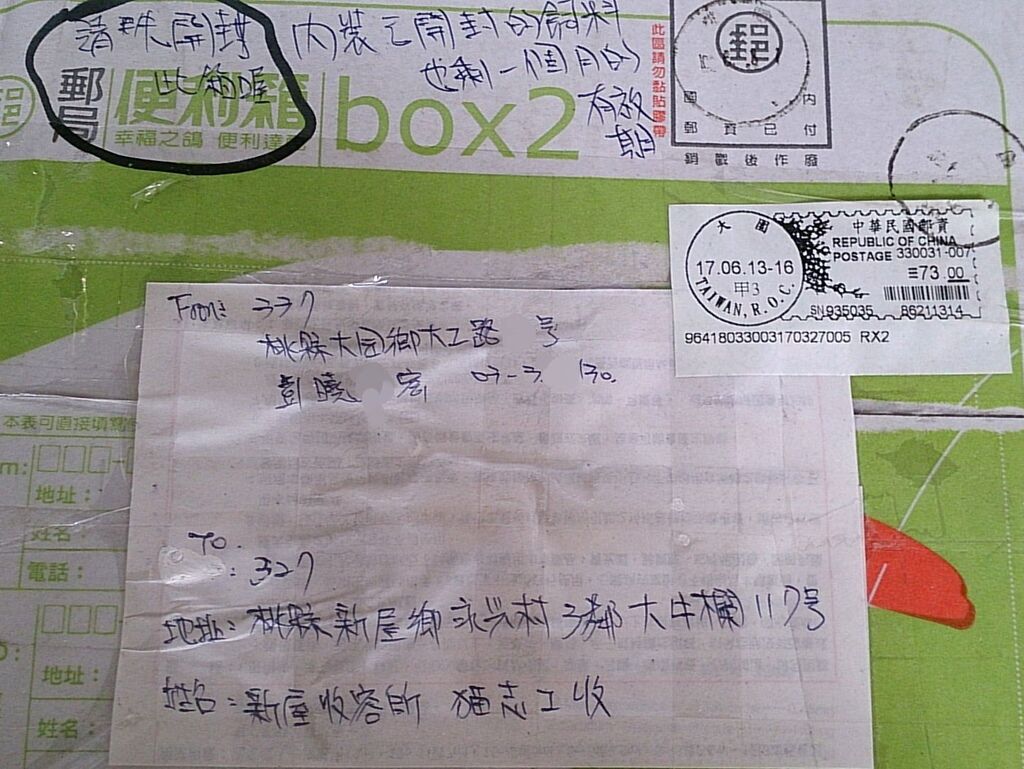 請趕快開封
此箱喔
內裝已開封的飼料
也剩一個月的
有效期
郵局
便利箱
幸福之鴿 便利達
box2
此區請勿黏貼膠帶
郵
國 內
郵資已付
銷戳後作廢
大園
17.06.13-16
甲3
TAIWAN, R.O.C.
中華民國郵資
REPUBLIC OF CHINA
POSTAGE 330031-007
73.00
SN935035 86211314
96418033003170327005 RX2
From: 337
桃縣大园鄉大工路 号
彭曉 寄 03-3 130.
To.
: 327
地址: 桃縣新屋鄉永兴村3鄰大牛欄117号
姓名: 新屋收容所 貓志工收
本表可直接填寫
m:
地址：
姓名：
電話：
地址：
姓名：